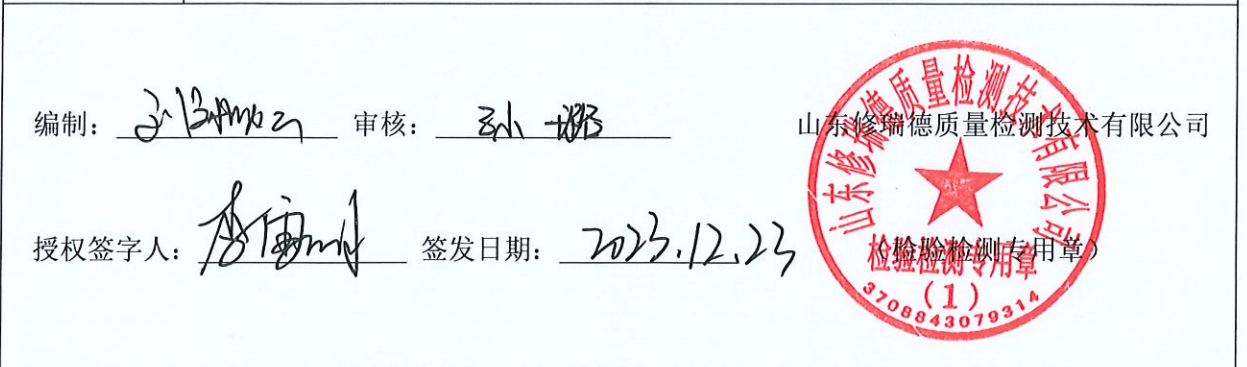 编制： 审核： 山东修瑞德质量检测技术有限公司
授权签字人： 签发日期： 2023.12.23 （检验检测专用章）
山东修瑞德质量检测技术有限公司
检验检测专用章
（1）
3708843079314